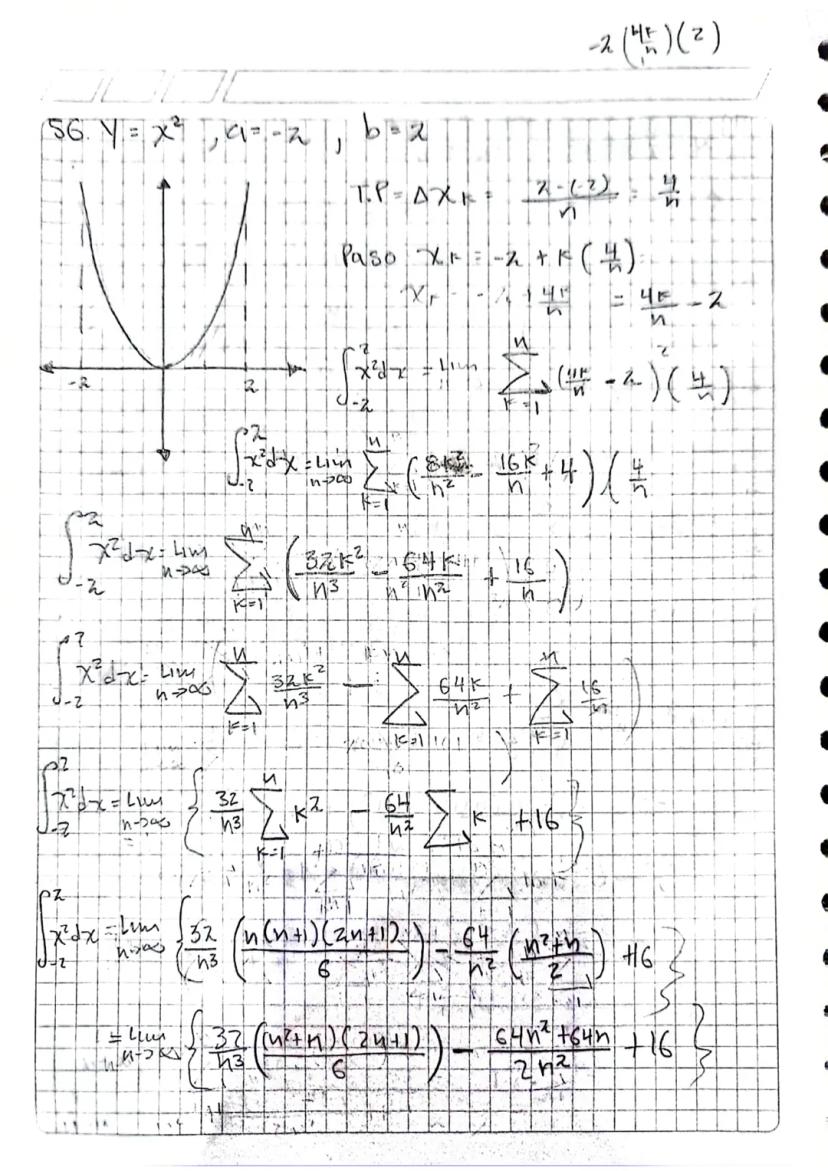 -2(4k/n)(2)
56. Y = x², a = -2, b = 2
T.P = Δxₖ = (2-(-2))/n = 4/n
Paso xₖ = -2 + k(4/n)
xₖ = -2 + 4k/n = 4k/n - 2
-2 2
∫₋₂² x²dx = Lim ∑ₖ₌₁ⁿ (4k/n - 2)² (4/n)
∫₋₂² x²dx = Lim n→∞ ∑ₖ₌₁ⁿ (8k²/n² - 16k/n + 4)(4/n
∫₋₂² x²dx = Lim n→∞ ∑ₖ₌₁ⁿ (32k²/n³ - 64k/n² + 16/n)
∫₋₂² x²dx = Lim n→∞ (∑ₖ₌₁ⁿ 32k²/n³ - ∑ₖ₌₁ⁿ 64k/n² + ∑ₖ₌₁ⁿ 16/n)
∫₋₂² x²dx = Lim n→∞ {32/n³ ∑ₖ₌₁ⁿ k² - 64/n² ∑ k + 16}
∫₋₂² x²dx = Lim n→∞ {32/n³ (n(n+1)(2n+1)/6) - 64/n² ((n²+n)/2) + 16}
= Lim n→∞ {32/n³ ((n²+n)(2n+1)/6) - (64n²+64n)/2n² + 16}